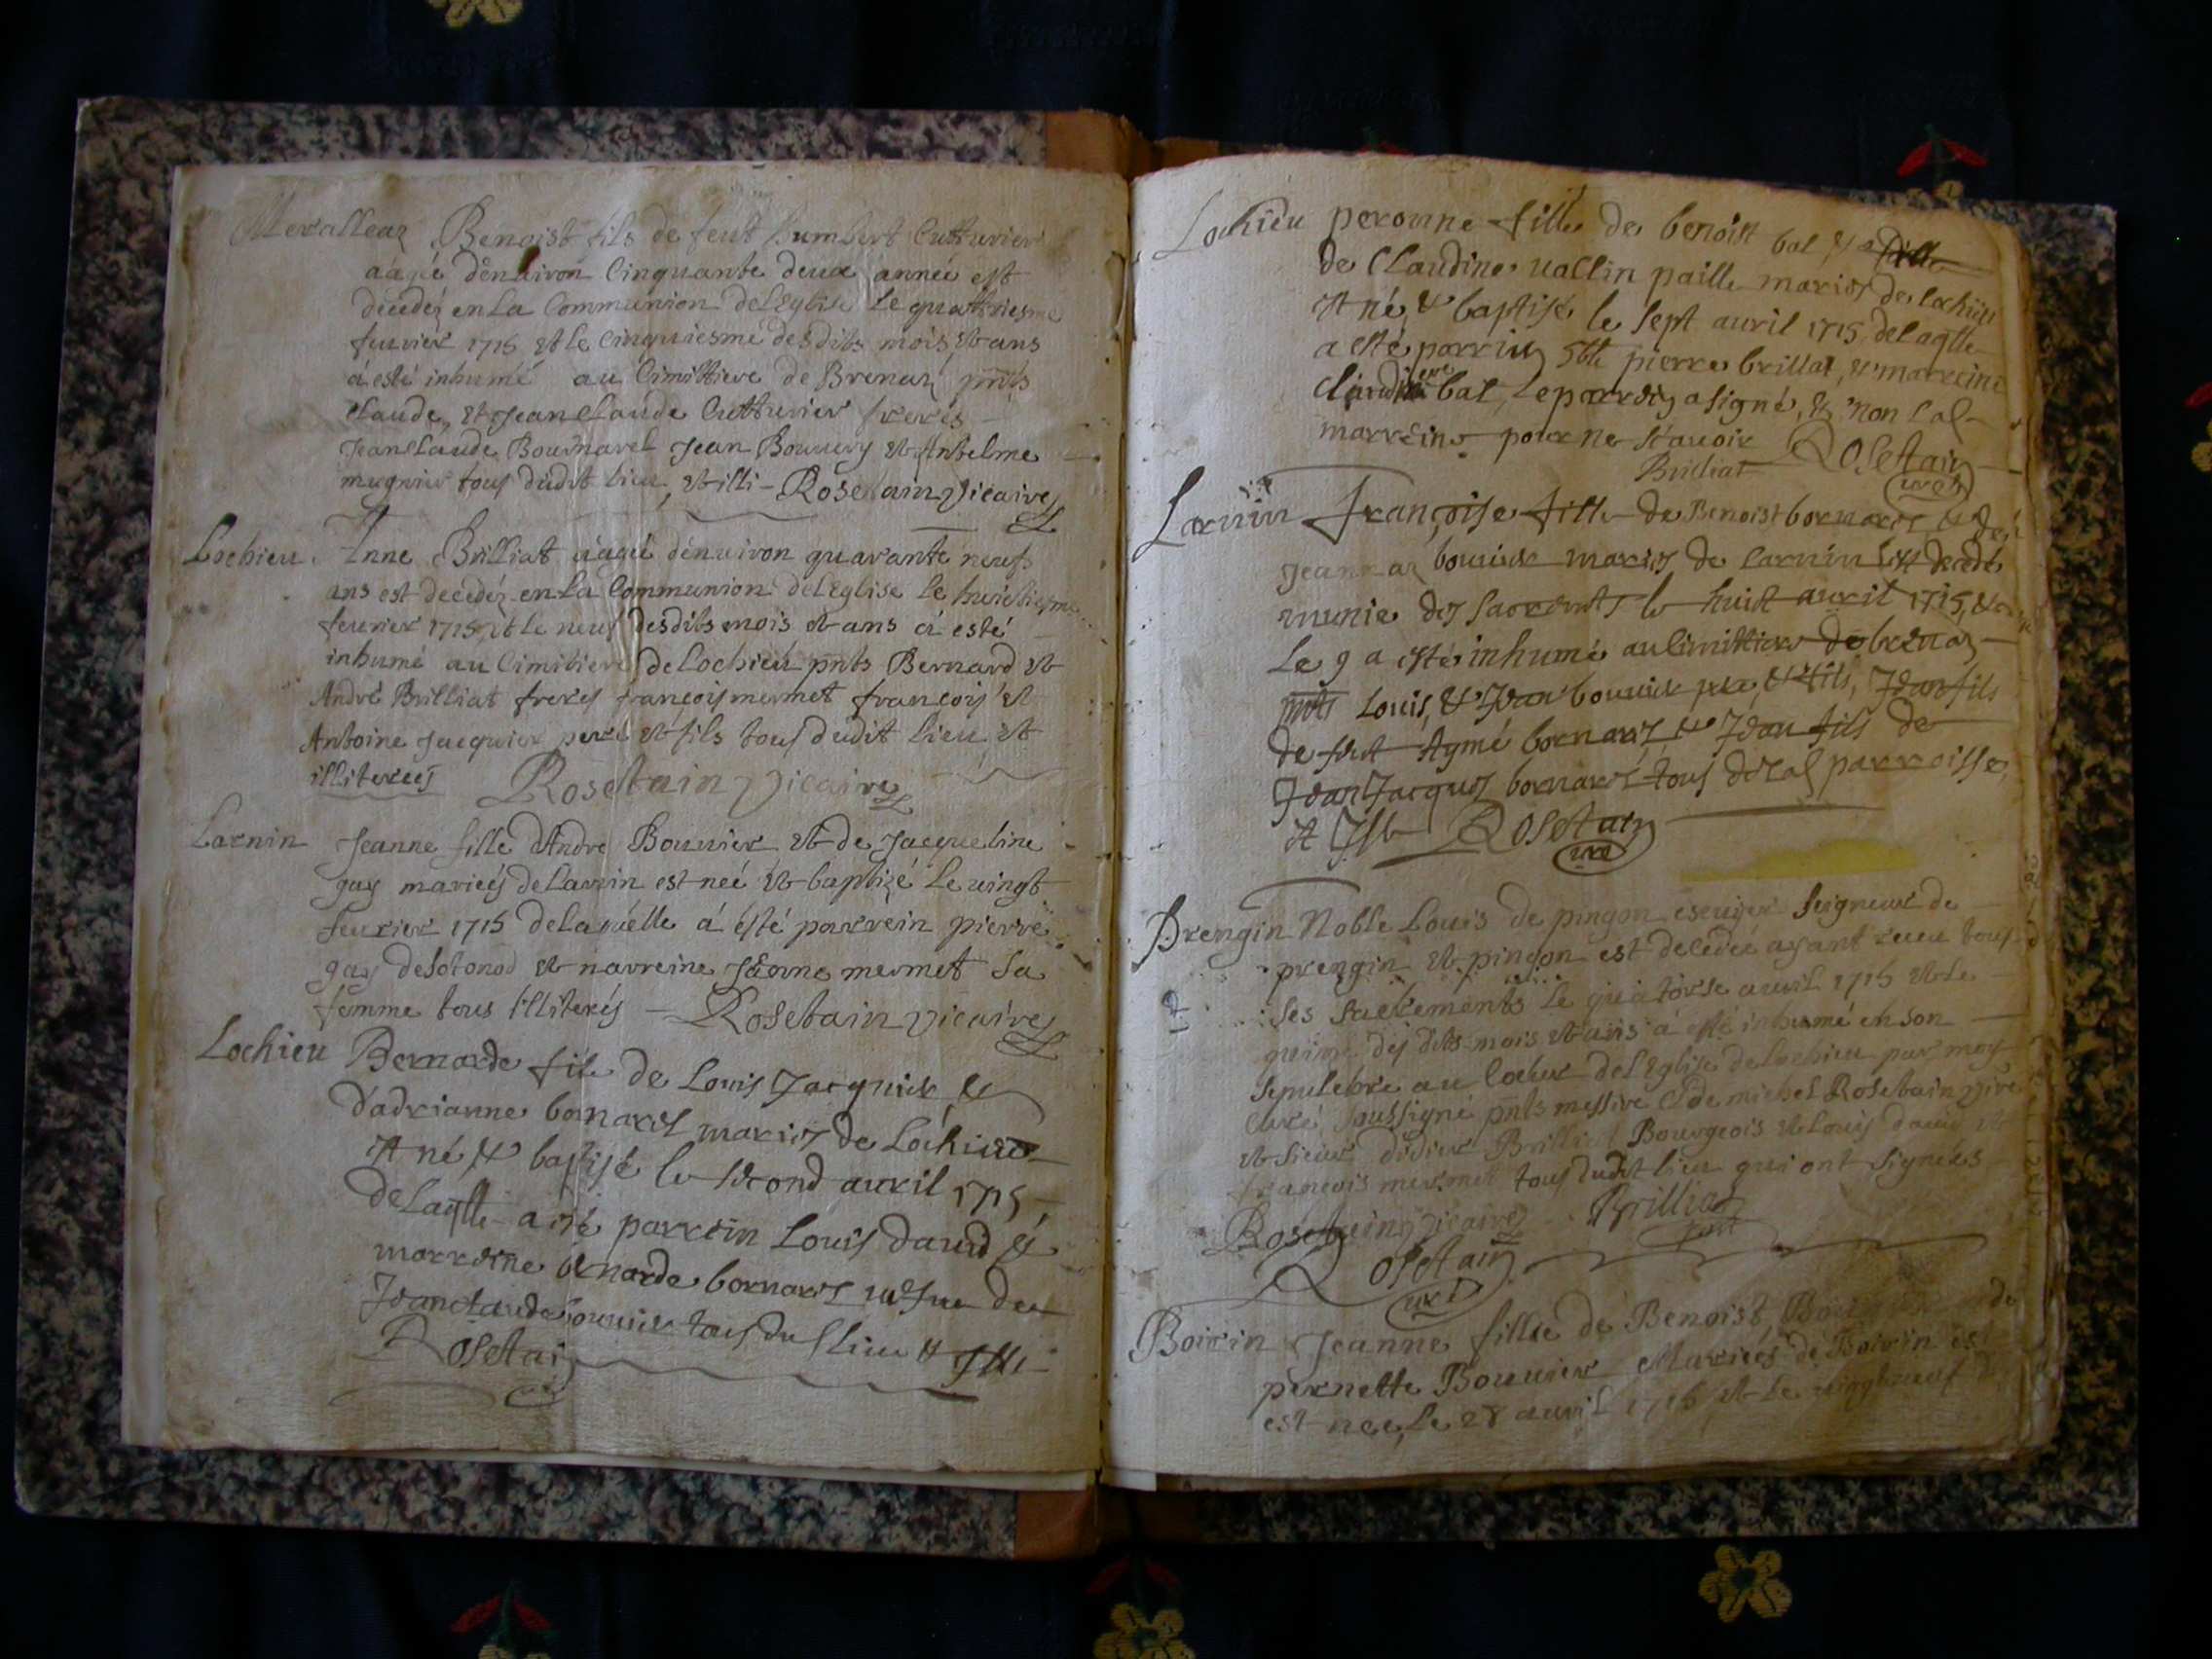 Meralleaz Benoist fils de feut humbert Cutturier
aagé dénuiron Cinquante deux année est
decedéz en La Communion de LEglise Le quattriesme
feuurier 1715 et le Cinquiesme desdits mois et ans
à esté inhumé au Cimittiere de Brenaz pnts
Claude et Jean Claude Cutturier freres
Jean Claude Bournarel Jean Bouuery et Antelme
mugnier tous dudit lieu et illi - Rosetain vicaire
Lochieu. Anne Brilliat aagé dénuiron quarante neufs
ans est decedéz en La Communion de LEglise Le huictiesme
feurier 1715 et le neuf desdits mois et ans à esté
inhumé au Cimitiere de Lochieu pnts Bernard et
André Brilliat freres françois mermet françois et
Antoine Jacquier pere et fils tous dudit lieu et
illiterés Rosetain vicaire
Larnin Jeanne fille dAndré Bouuier et de Jacqueline
guy mariés de Larnin est neé et baptizé Le uingt
feurier 1715 de laquelle à ésté parrein pierre
guy de Sotonod et marreine Jeanne mermet Sa
femme tous illiterés - Rosetain vicaire
Lochieu Bernarde fille de Louis Jacquier &
d'adrianne bornarel mariés de Lochieu
et né & baptisé le second auril 1715
de Laqlle a esté parrein Louis dauid &
marreine bernarde bornarel uefue de
Jean claude bouuier tous du lieu & Illi
Rosetain
curé
Lochieu peronne fille de benoist bal &
de Claudine uallin paille mariés de lochieu
et né & baptisé le sept auril 1715 de laqlle
a esté parrin pierre brillat, & marreine
bal, Le parrein a signé, & non lad
marreine pour ne scauoir Rosetain
Brilliat curé
Larnin françoise fille de Benoist bornarel & de
Jeannaz bouuier mariés de Larnin est decedé
munie des sacremts le huit auril 1715, &
Le 9 a esté inhumé au Cimittiere de brenaz
pnts Louis, & Jean bouuier pere, & fils, Jean fils
de feut Aymé bornarel & Jean fils de
Jean Jacques bornarel tous de lad parroisse,
et Illi Rosetain
curé
Prengin Noble Louis de pingon escuyer seigneur de
prengin et pingon est decedeé ayant receu tous
ses sacrements le quatorse auril 1715 et Le
quinze des dits mois et ans à esté inhumé en son
sepulchre au Coeur de LEglise de Lochieu par moy
Curé soussigné pnts messire Clde michel Rosetain vire
et sieur didier Brilliat Bourgeois et Louis dauid et
françois mermet tous dudit lieu qui ont signés
Rosetain vicaire Brilliat
Rosetain
curé
Boirin Jeanne fillie de Benoist
pernette Bouuier Mariés de Boirin est
est neé, Le 28 auril 1715 et Le uingtneuf